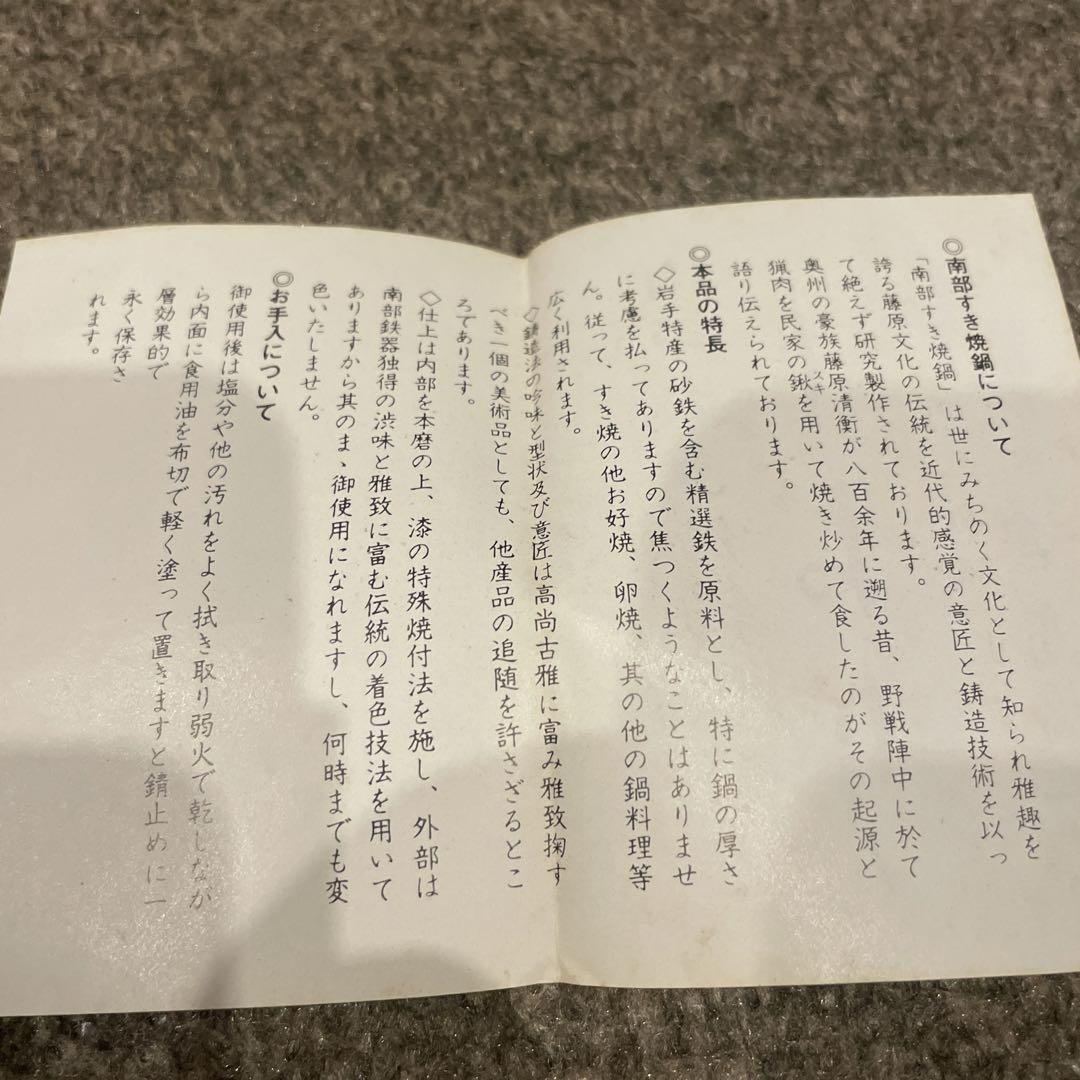 ◎南部すき焼鍋について
「南部すき焼鍋」は世にみちのく文化として知られ雅趣を
誇る藤原文化の伝統を近代的感覚の意匠と鋳造技術を以っ
て絶えず研究製作されております。
奥州の豪族藤原清衡が八百余年に遡る昔、野戦陣中に於て
猟肉を民家の鍬スキを用いて焼き炒めて食したのがその起源と
語り伝えられております。
◎本品の特長
◇岩手特産の砂鉄を含む精選鉄を原料とし、特に鍋の厚さ
に考慮を払ってありますので焦つくようなことはありませ
ん。従って、すき焼の他お好焼、卵焼、其の他の鍋料理等
広く利用されます。
◇鋳造法の吟味と型状及び意匠は高尚古雅に富み雅致掬す
べき一個の美術品としても、他産品の追随を許さざるとこ
ろであります。
◇仕上は内部を本磨の上、漆の特殊焼付法を施し、外部は
南部鉄器独得の渋味と雅致に富む伝統の着色技法を用いて
ありますから其のまゝ御使用になれますし、何時までも変
色いたしません。
◎お手入について
御使用後は塩分や他の汚れをよく拭き取り弱火で乾しなが
ら内面に食用油を布切で軽く塗って置きますと錆止めに一
層効果的で
永く保存さ
れます。